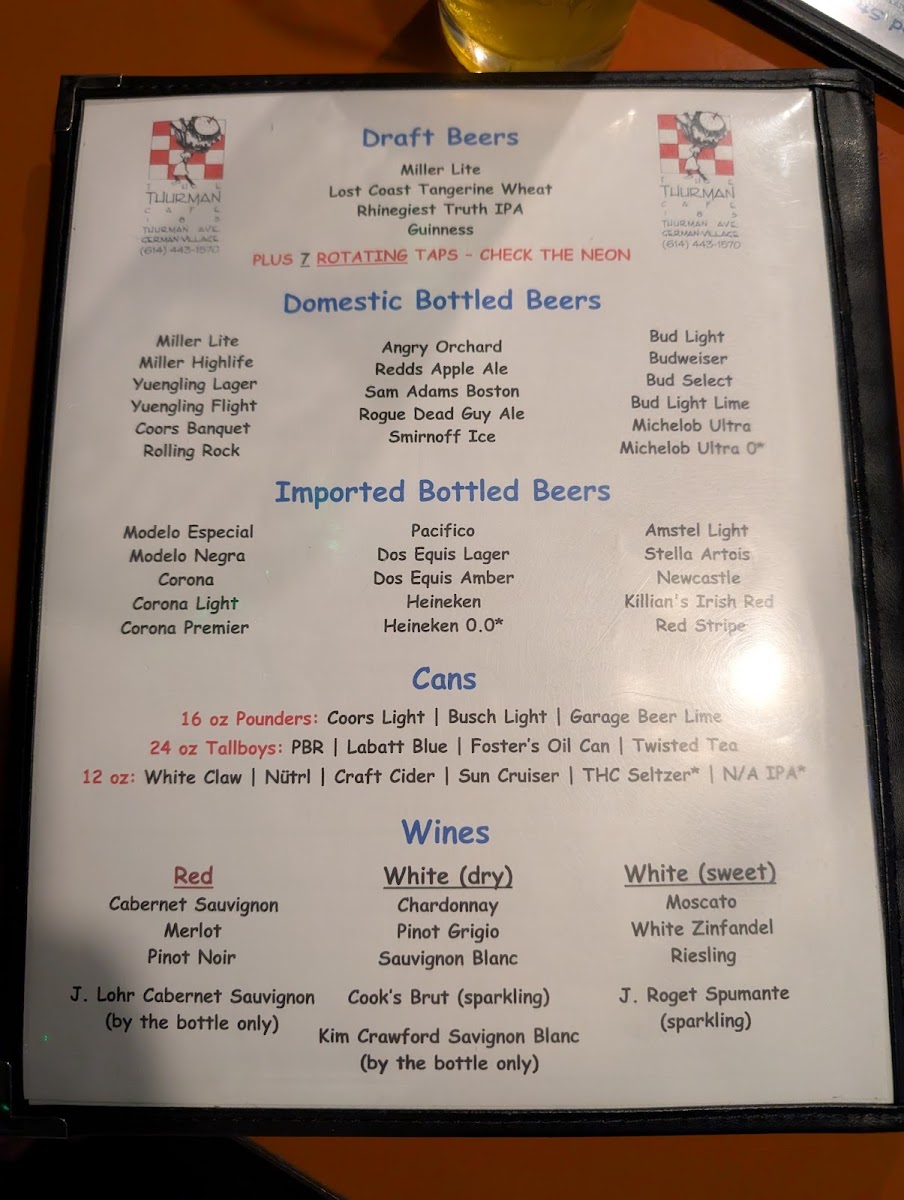 THE
THURMAN
CAFE
183
THURMAN AVE.
GERMAN VILLAGE
(614) 443-1570
THE
THURMAN
CAFE
183
THURMAN AVE.
GERMAN VILLAGE
(614) 443-1570
Draft Beers
Miller Lite
Lost Coast Tangerine Wheat
Rhinegiest Truth IPA
Guinness
PLUS 7 ROTATING TAPS - CHECK THE NEON
Domestic Bottled Beers
Miller Lite
Miller Highlife
Yuengling Lager
Yuengling Flight
Coors Banquet
Rolling Rock
Angry Orchard
Redds Apple Ale
Sam Adams Boston
Rogue Dead Guy Ale
Smirnoff Ice
Bud Light
Budweiser
Bud Select
Bud Light Lime
Michelob Ultra
Michelob Ultra 0*
Imported Bottled Beers
Modelo Especial
Modelo Negra
Corona
Corona Light
Corona Premier
Pacifico
Dos Equis Lager
Dos Equis Amber
Heineken
Heineken 0.0*
Amstel Light
Stella Artois
Newcastle
Killian's Irish Red
Red Stripe
Cans
16 oz Pounders: Coors Light | Busch Light | Garage Beer Lime
24 oz Tallboys: PBR | Labatt Blue | Foster's Oil Can | Twisted Tea
12 oz: White Claw | Nütrl | Craft Cider | Sun Cruiser | THC Seltzer* | N/A IPA*
Wines
Red
Cabernet Sauvignon
Merlot
Pinot Noir
J. Lohr Cabernet Sauvignon
(by the bottle only)
White (dry)
Chardonnay
Pinot Grigio
Sauvignon Blanc
Cook's Brut (sparkling)
Kim Crawford Savignon Blanc
(by the bottle only)
White (sweet)
Moscato
White Zinfandel
Riesling
J. Roget Spumante
(sparkling)